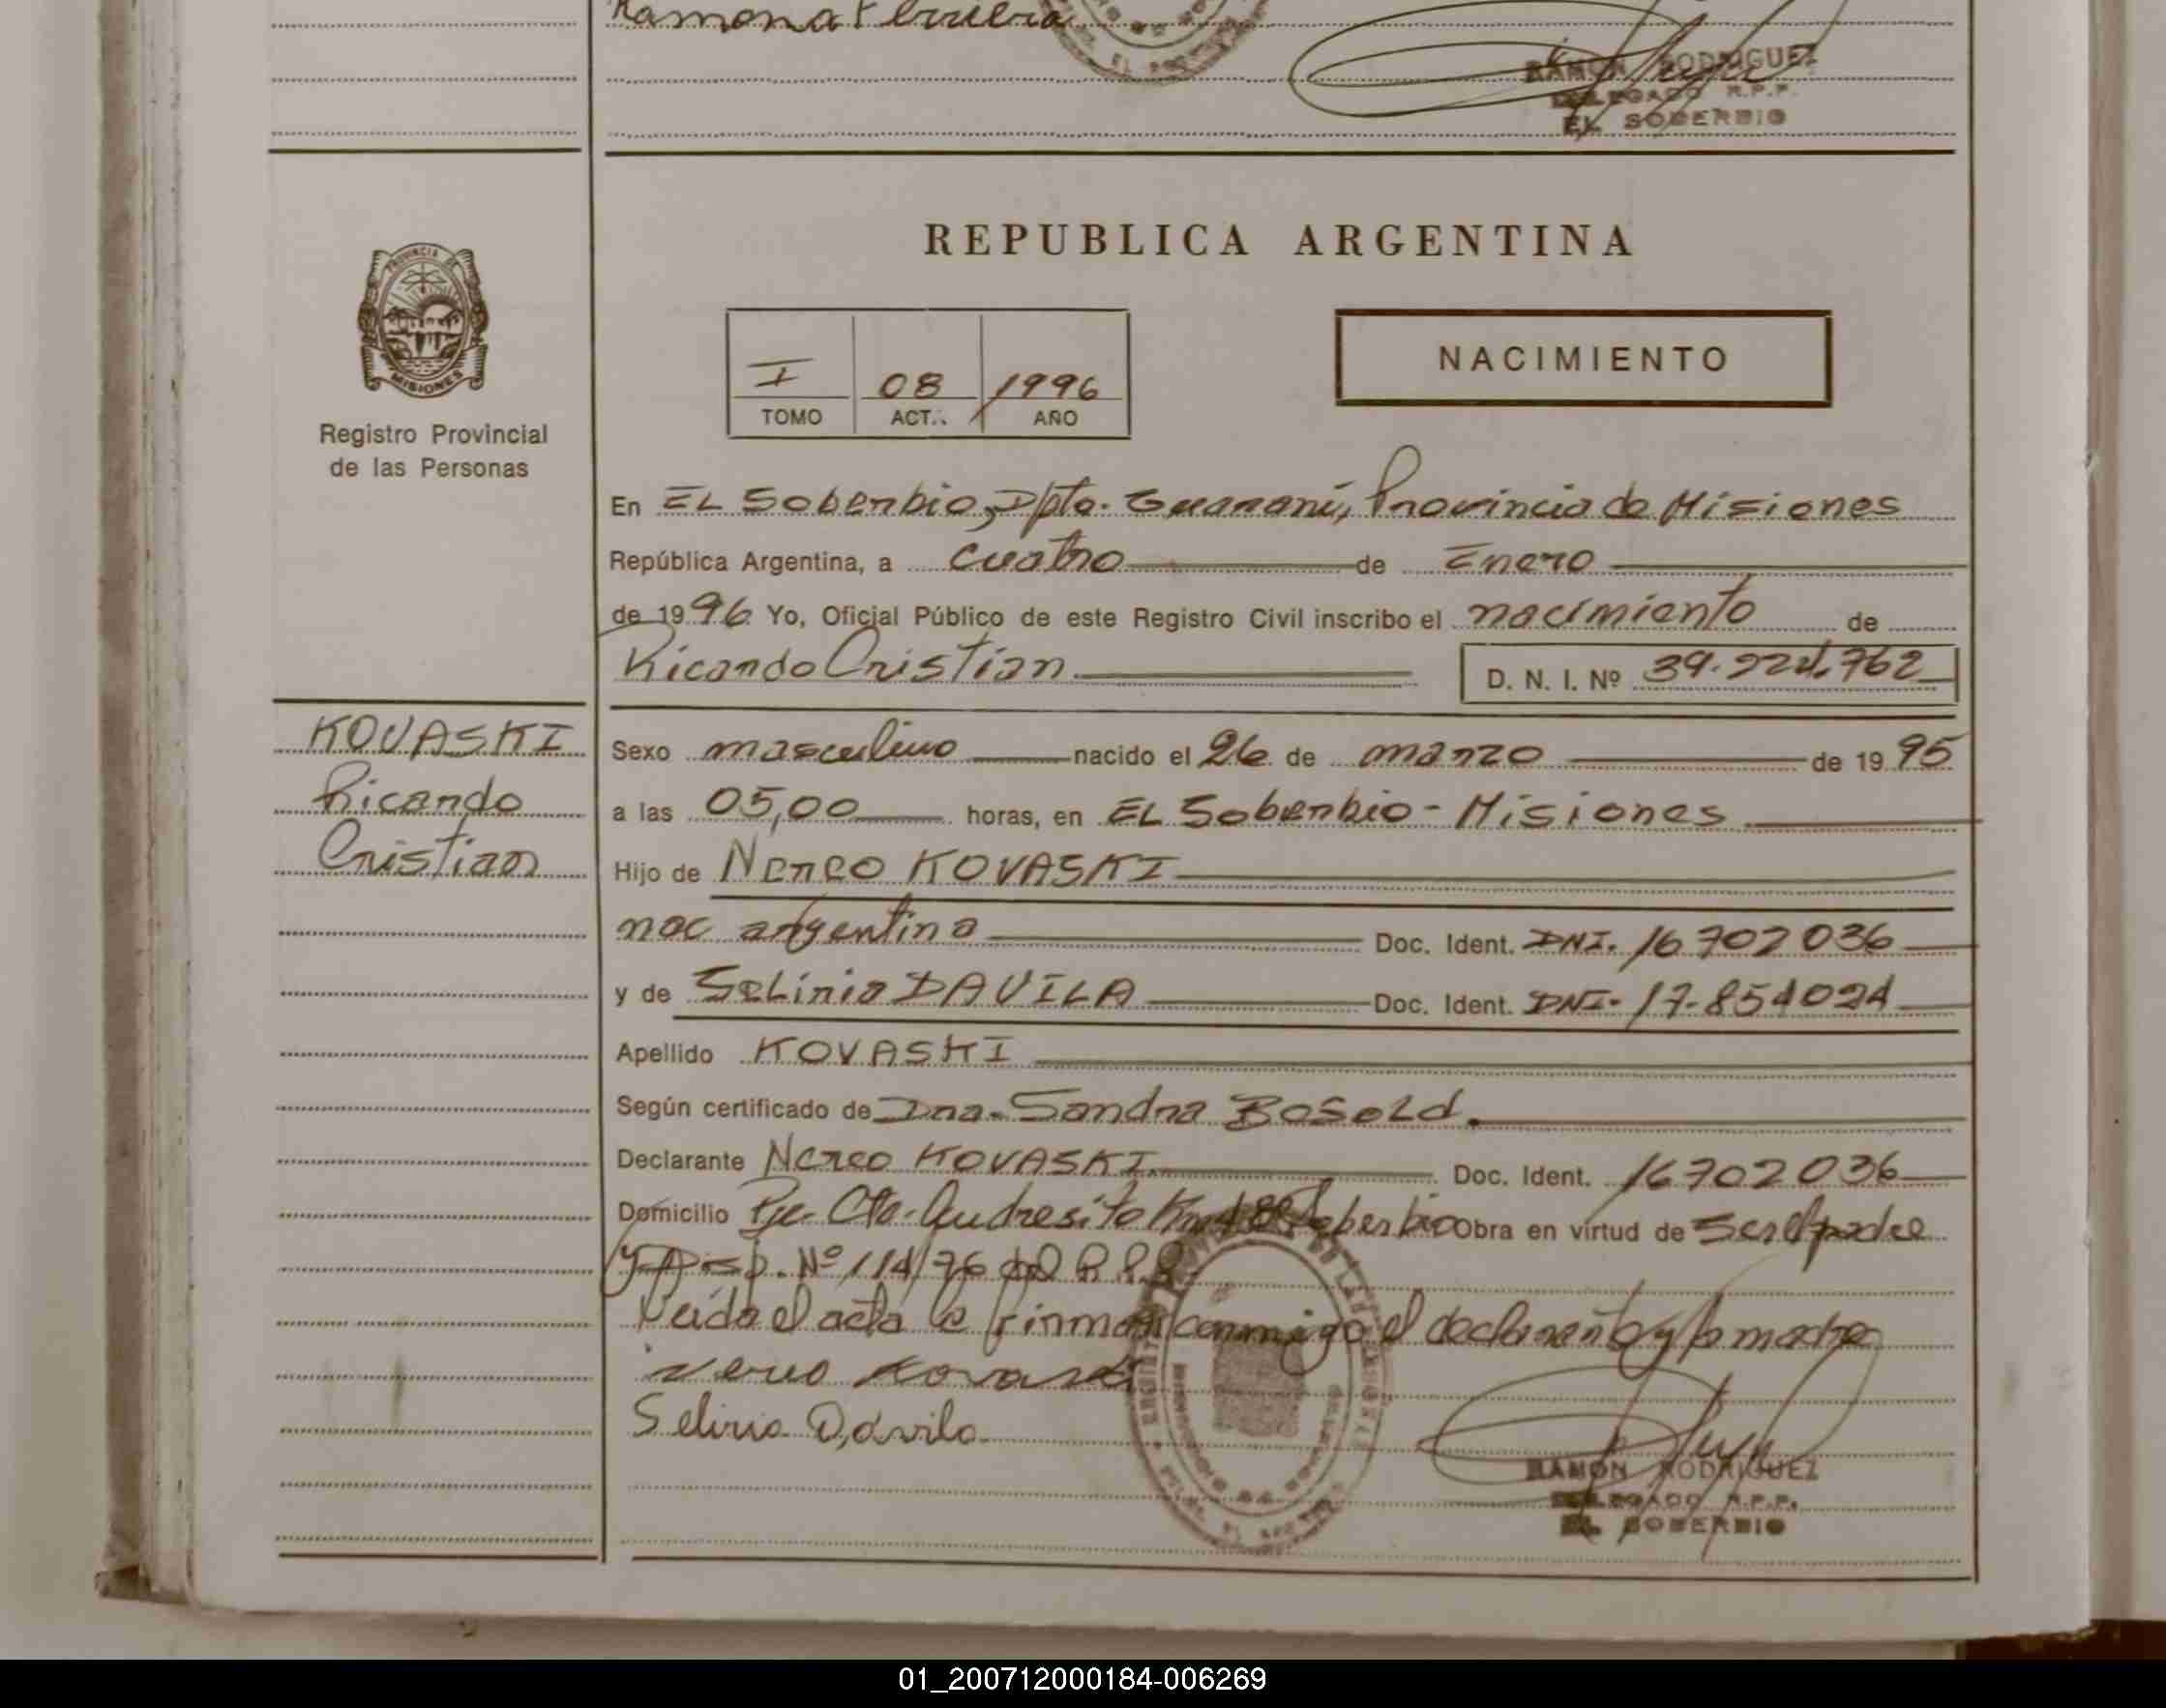 Ramona Ferreira
RAMON RODRIGUEZ
DELEGADO R.P.P.
EL SOBERBIO
REPUBLICA ARGENTINA
PROVINCIA DE
MISIONES
Registro Provincial
de las Personas
I 08 1996
TOMO ACT.. AÑO
NACIMIENTO
En EL Soberbio, Dpto. Guaraní, Provincia de Misiones
República Argentina, a cuatro de Enero
de 1996 Yo, Oficial Público de este Registro Civil inscribo el nacimiento de
Ricardo Cristian D. N. I. Nº 39.224.762
KOVASKI
Ricardo
Cristian
Sexo masculino nacido el 26 de marzo de 1995
a las 05,00 horas, en EL Soberbio - Misiones
Hijo de Nereo KOVASKI
nac argentina Doc. Ident. DNI. 16702036
y de Selinia DAVILA Doc. Ident. DNI- 17-854024
Apellido KOVASKI
Según certificado de Dra. Sandra Bosold.
Declarante Nereo KOVASKI Doc. Ident. 16702036
Domicilio Pje. Cto. Andresito Km Soberbio Obra en virtud de Ser el padre
y Disp. Nº 114/76 del R.P.P.
Leída el acta la firman conmigo el declarante y la madre
Nereo Kovaski
Selinia Davila
RAMON RODRIGUEZ
DELEGADO R.P.P.
EL SOBERBIO
01_200712000184-006269